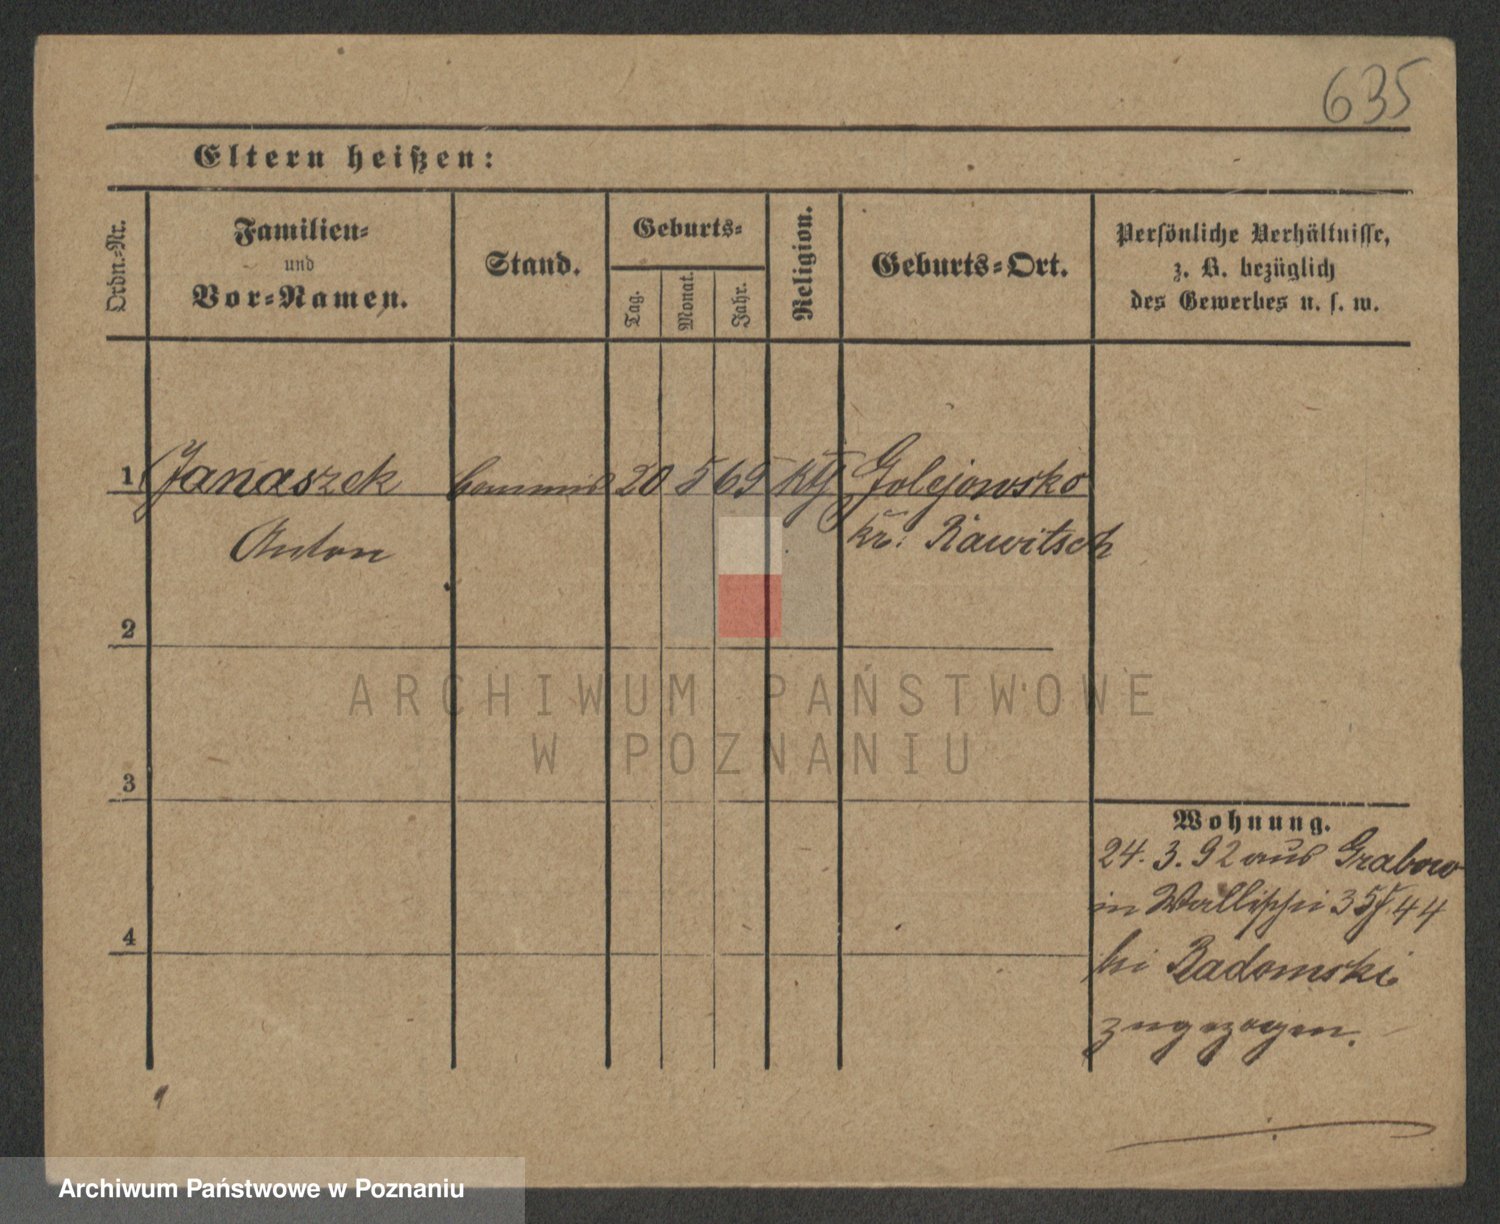 635
Eltern heißen:
Ordn.-Nr.
Familien-
und
Vor-Namen.
Stand.
Geburts-
Tag.
Monat.
Jahr.
Religion.
Geburts-Ort.
Persönliche Verhältnisse,
z. B. bezüglich
des Gewerbes u. s. w.
1 Janaszek Commis 20 5 69 kth Golejowsko
Anton Kr. Rawitsch
2
3
4
Wohnung.
24. 3. 92 aus Grabow
in Wallischei 44
bei Radomski
zugezogen.
ARCHIWUM PAŃSTWOWE
W POZNANIU
Archiwum Państwowe w Poznaniu